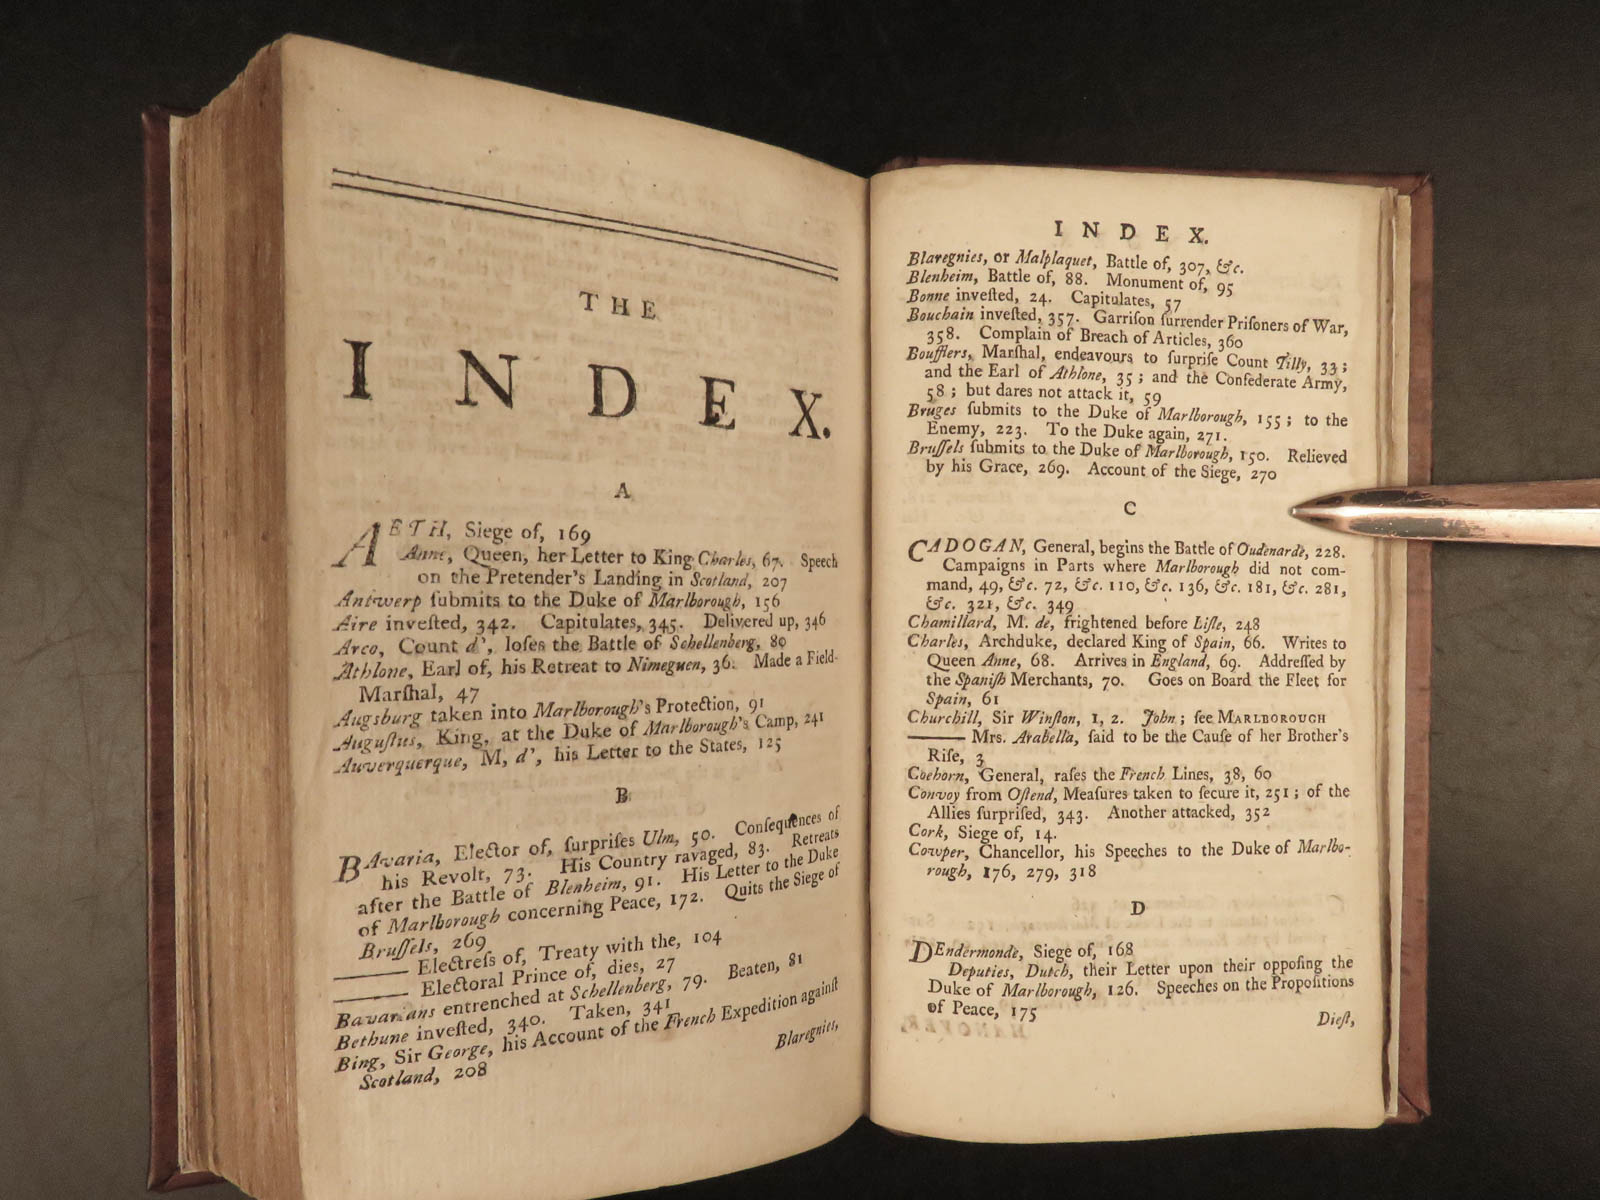 THE
INDEX.
A
AETH, Siege of, 169
Anne, Queen, her Letter to King Charles, 67. Speech
on the Pretender's Landing in Scotland, 207
Antwerp ſubmits to the Duke of Marlborough, 156
Aire inveſted, 342. Capitulates, 345. Delivered up, 346
Arco, Count d', loſes the Battle of Schellenberg, 80
Athlone, Earl of, his Retreat to Nimeguen, 36. Made a Field-
Marſhal, 47
Augsburg taken into Marlborough's Protection, 91
Auguſtus, King, at the Duke of Marlborough's Camp, 241
Auverquerque, M, d', his Letter to the States, 125
B
BAvaria, Elector of, ſurpriſes Ulm, 50. Conſequences of
his Revolt, 73. His Country ravaged, 83. Retreats
after the Battle of Blenheim, 91. His Letter to the Duke
of Marlborough concerning Peace, 172. Quits the Siege of
Bruſſels, 269
—— Electreſs of, Treaty with the, 104
—— Electoral Prince of, dies, 27
Bavarians entrenched at Schellenberg, 79. Beaten, 81
Bethune inveſted, 340. Taken, 341
Bing, Sir George, his Account of the French Expedition againſt
Scotland, 208
Blaregnies,
INDEX.
Blaregnies, or Malplaquet, Battle of, 307, &c.
Blenheim, Battle of, 88. Monument of, 95
Bonne inveſted, 24. Capitulates, 57
Bouchain inveſted, 357. Garriſon ſurrender Priſoners of War,
358. Complain of Breach of Articles, 360
Boufflers, Marſhal, endeavours to ſurpriſe Count Tilly, 33;
and the Earl of Athlone, 35; and the Confederate Army,
58; but dares not attack it, 59
Bruges ſubmits to the Duke of Marlborough, 155; to the
Enemy, 223. To the Duke again, 271.
Bruſſels ſubmits to the Duke of Marlborough, 150. Relieved
by his Grace, 269. Account of the Siege, 270
C
CADOGAN, General, begins the Battle of Oudenarde, 228.
Campaigns in Parts where Marlborough did not com-
mand, 49, &c. 72, &c. 110, &c. 136, &c. 181, &c. 281,
&c. 321, &c. 349
Chamillard, M. de, frightened before Liſle, 248
Charles, Archduke, declared King of Spain, 66. Writes to
Queen Anne, 68. Arrives in England, 69. Addreſſed by
the Spaniſh Merchants, 70. Goes on Board the Fleet for
Spain, 61
Churchill, Sir Winſton, 1, 2. John; ſee MARLBOROUGH
—— Mrs. Arabella, ſaid to be the Cauſe of her Brother's
Riſe, 3
Coehorn, General, raſes the French Lines, 38, 60
Convoy from Oſtend, Meaſures taken to ſecure it, 251; of the
Allies ſurpriſed, 343. Another attacked, 352
Cork, Siege of, 14.
Cowper, Chancellor, his Speeches to the Duke of Marlbo-
rough, 176, 279, 318
D
DEndermonde, Siege of, 168
Deputies, Dutch, their Letter upon their oppoſing the
Duke of Marlborough, 126. Speeches on the Propoſitions
of Peace, 175
Dieſt,